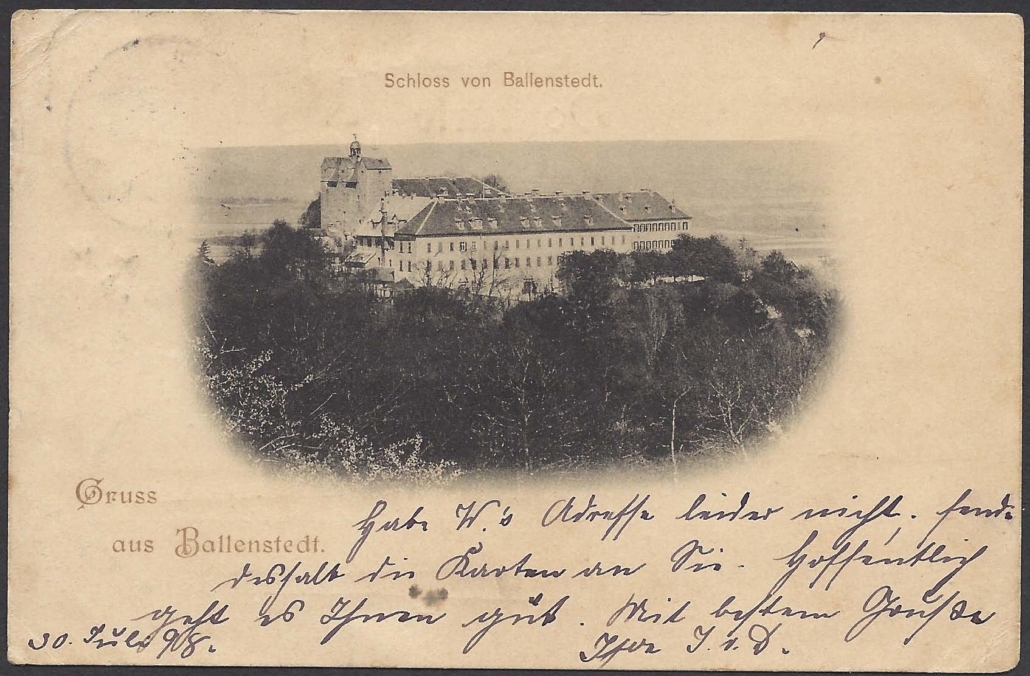 Schloss von Ballenstedt.
Gruss
aus Ballenstedt.
Habe W.'s Adresse leider nicht, sende
deshalb die Karten an Sie. Hoffentlich
geht es Ihnen gut. Mit bestem Gruße
30. Juli 98.
Ihr J. v. D.